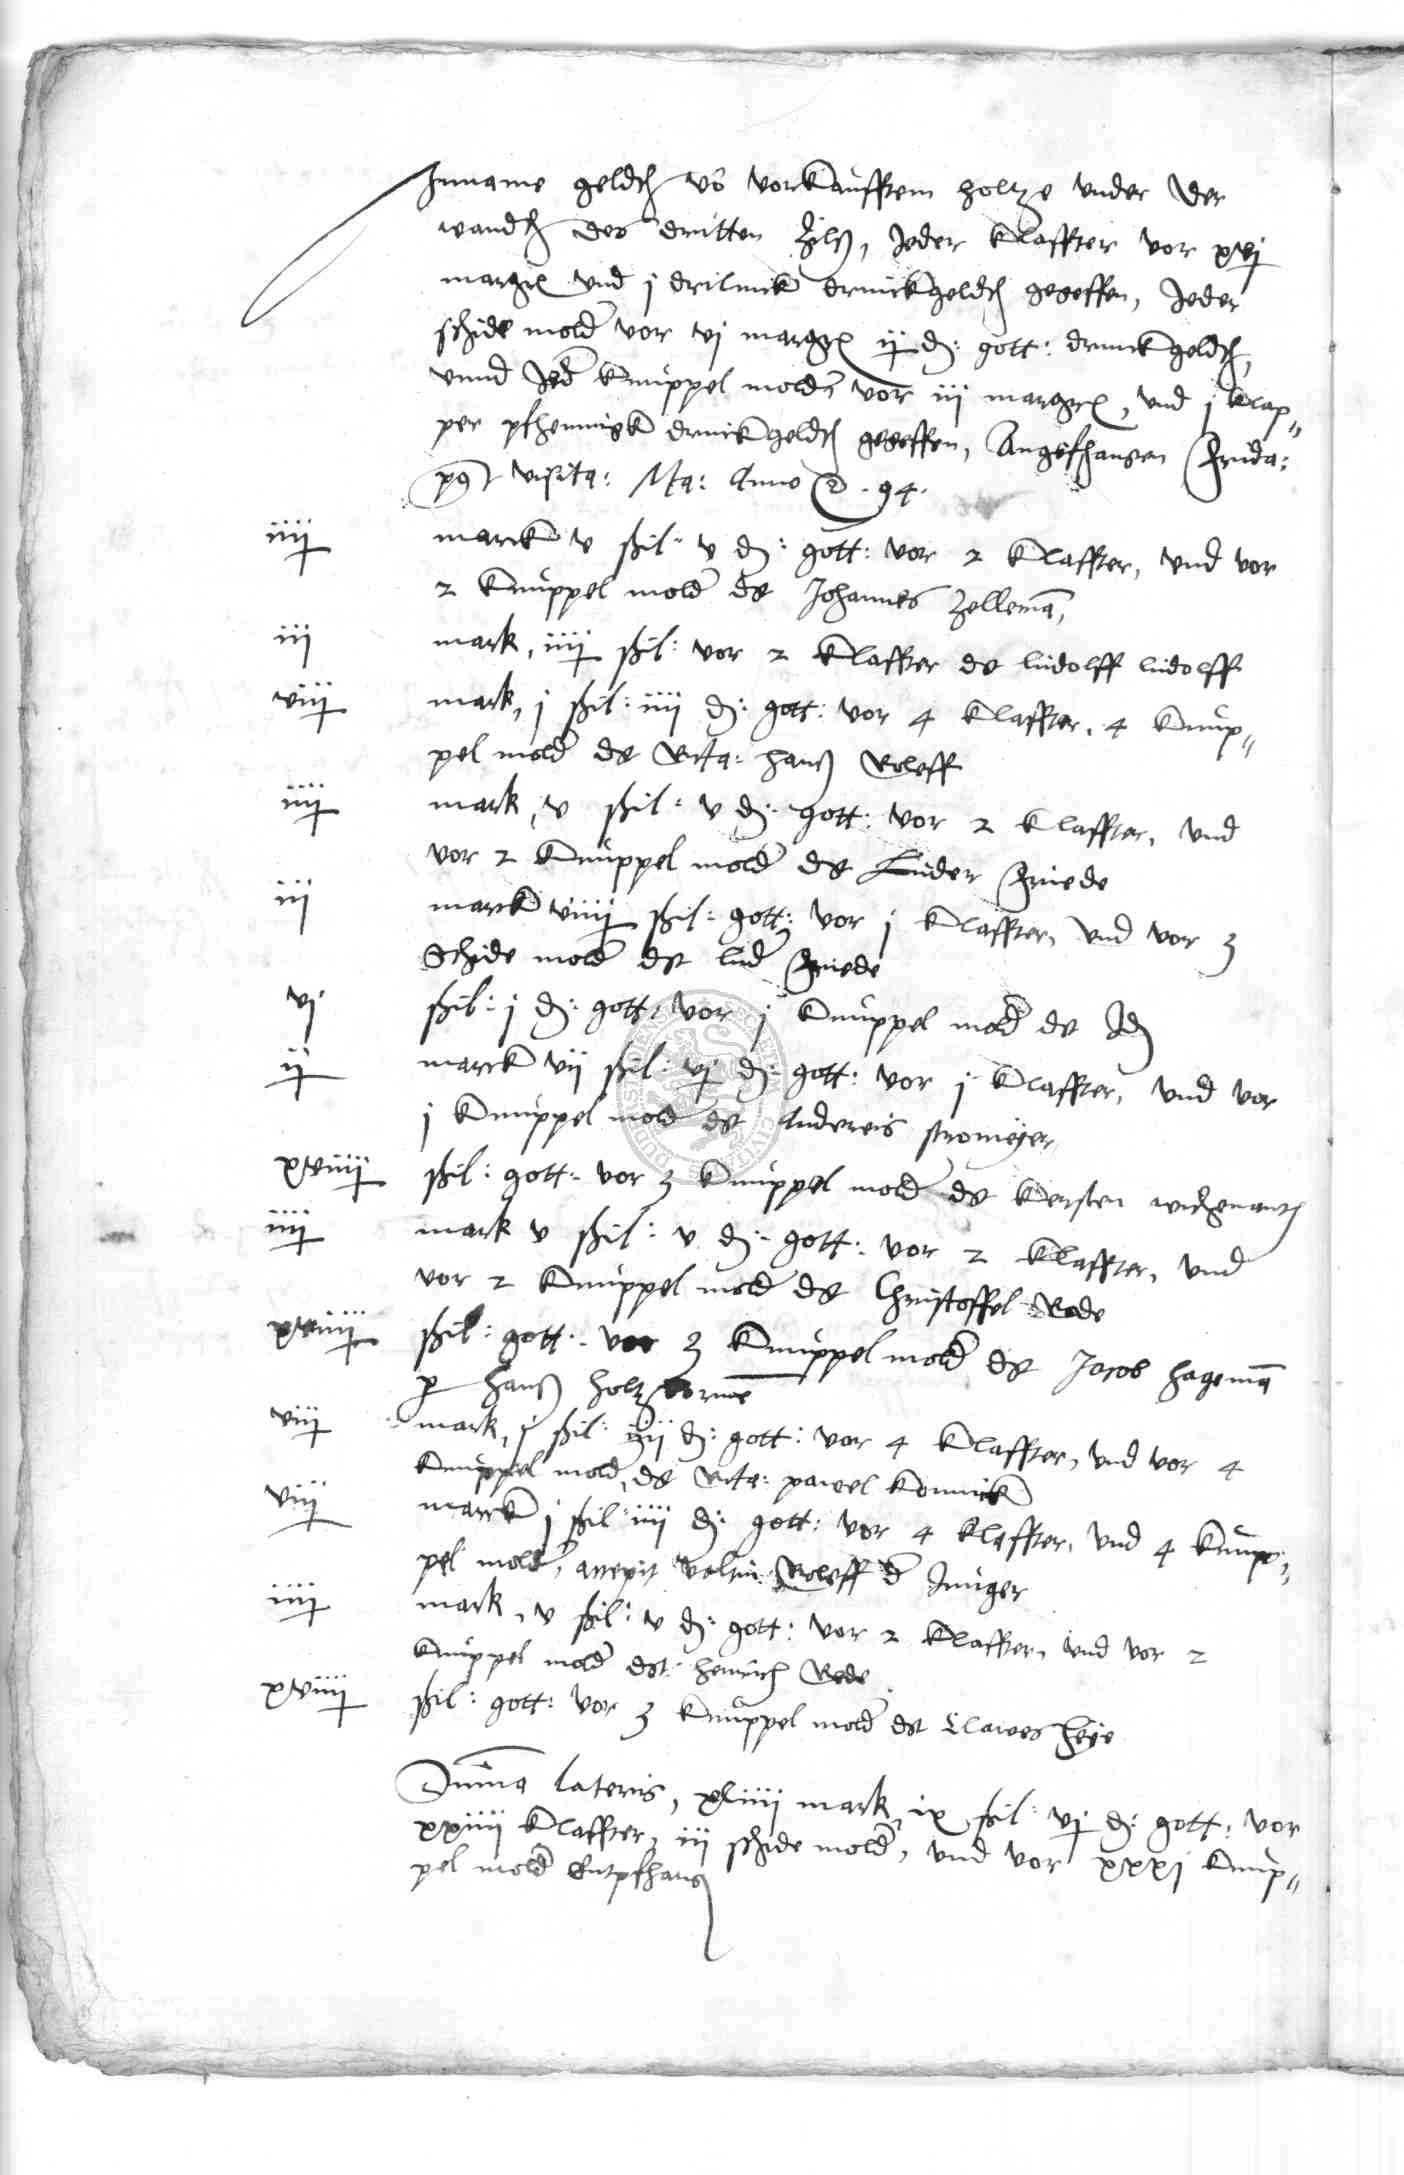 Inname geldes vō vorkaufftem holtze vnder der
wandes des dritten Zils, Jeder Klaffter vor xvj
margr vnd j drilinck drinckgeldes gegeffen, Jeder
schide molder vor vj margr ij d: gott: drinckgeldes,
vnnd Jed Knuppel molder, vor iij margr, vnd j klap„
per pfhennigk drinckgeldes gegeffen, Angefhangen frida:
post visita: Ma: Anno D. 94.
iiij marck v ßil: v d: gott: vor 2 Klaffter, vnd vor
2 Knuppel mold ds Johannes Zellemā,
iij mark, iiij ßil: vor 2 Klaffter ds ludolff ludolff
viij mark, j ßil: iiij d: gott: vor 4 Klaffter, 4 Knup„
pel mold ds hans Roleff
iiij mark, v ßil: v d: gott: vor 2 Klaffter, vnd
vor 2 Knuppel mold ds Luder friede
iij marck viiij ßil: gott: vor j Klaffter, vnd vor 3
Schide mold dt lud friede
vj ßil: j d: gott: vor j Knuppel mold ds Id
ij marck vij ßil: vj d: gott: vor j Klaffter, vnd vor
j Knuppel mold dt Andereis stromeyer
xviiij ßil: gott: vor 3 Knuppel mold ds Kersten
iiij mark v ßil: v d: gott: vor 2 Klaffter, vnd
vor 2 Knuppel mold ds Christoffel Rode
xviiij ßil: gott: vor 3 Knuppel mold ds Jacob hagemā
p hans
viij mark, j ßil: iiij d: gott: vor 4 Klaffter, vnd vor 4
Knuppel mold, ds pawel Konnick
viij marck j ßil: iiij d: gott: vor 4 Klaffter, vnd 4 Knup„
pel mold, accepit Valtin Roleff d Junger
iiij mark, v ßil: v d: gott: vor 2 Klaffter, vnd vor 2
Knuppel mold dt heinrich Rode
xviiij ßil: gott: vor 3 Knuppel mold dt Clawes heye
Suma lateris, xliiij mark, ix ßil: vj d: gott: vor
xxiiij Klaffter, iij schide mold, vnd vor xxxj Knup„
pel mold Entpfhans